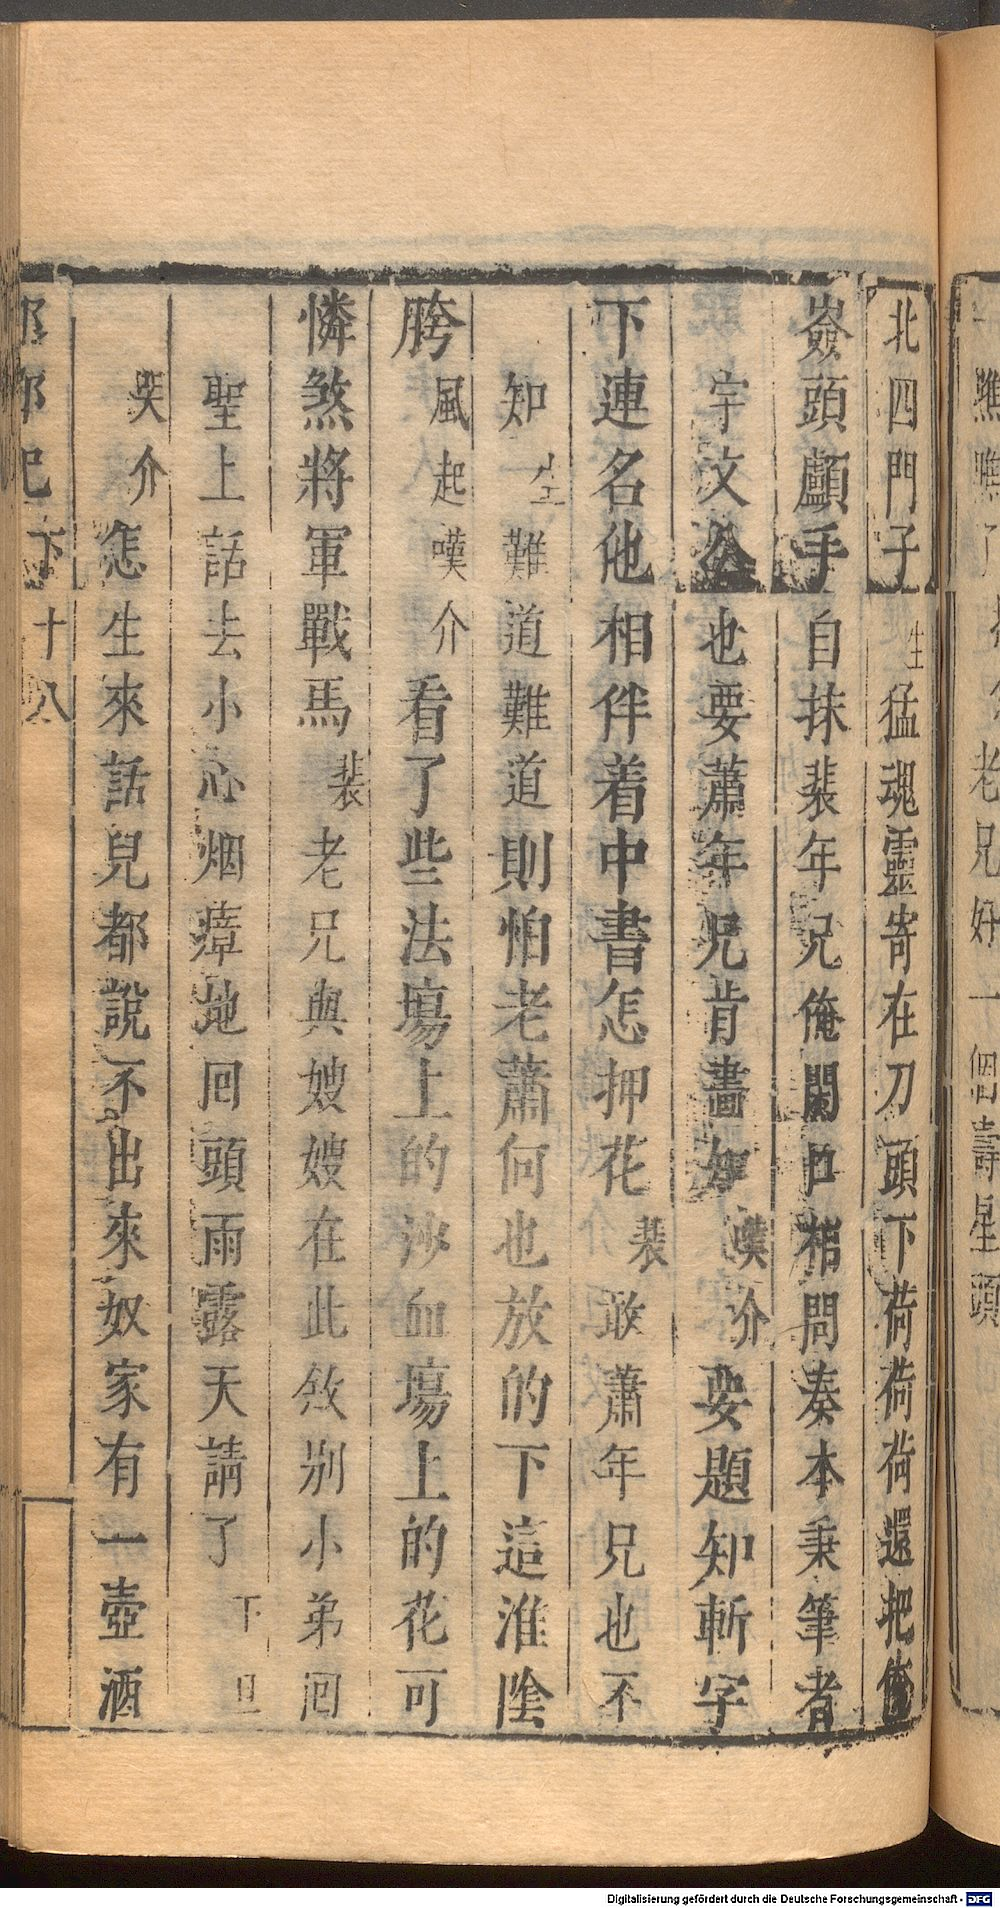 瞧瞧
老兄好一個壽星頭
北四門子生猛魂靈寄在刀頭下荷荷荷還把俺
嶮頭顱手自抹裴年兄俺闌口相問奏本秉筆者
宇文公也要蕭年兄肯畫如嘆介要題知斬字
下連名他相伴着中書怎押花裴敢蕭年兄也不
知生難道難道則怕老蕭何也放的下這淮陰
胯風起嘆介看了些法場上的沙血場上的花可
憐煞將軍戰馬裴老兄與嫂嫂在此敘别小弟囘
聖上話去小心烟瘴地囘頭雨露天請了下旦
哭介怎生來話兒都說不出來奴家有一壺酒
邯鄲記下十八
Digitalisierung gefördert durch die Deutsche Forschungsgemeinschaft - DFG